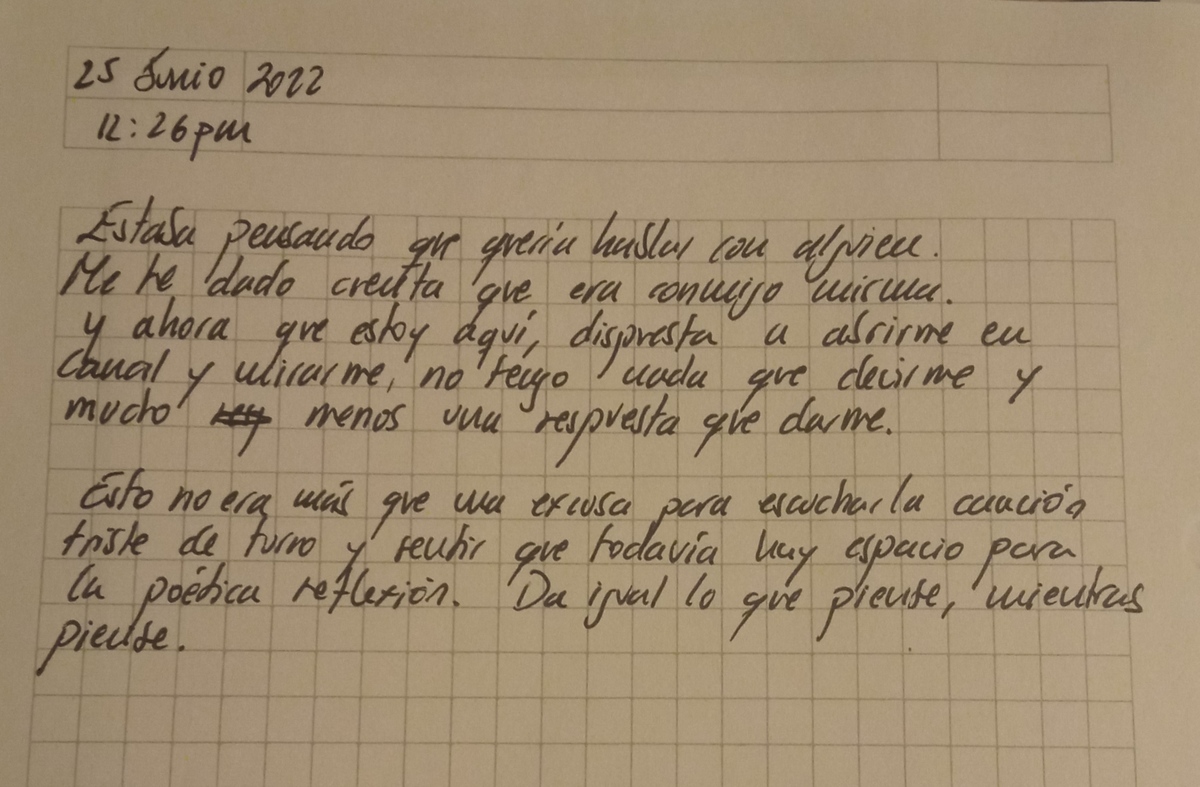 25 Junio 2022
12:26pm
Estaba pensando que quería hablar con alguien.
Me he dado cuenta que era conmigo misma.
y ahora que estoy aquí, dispuesta a abrirme en
canal y mirarme, no tengo nada que decirme y
mucho menos una respuesta que darme.
Esto no era más que una excusa para escuchar la canción
triste de turno y sentir que todavía hay espacio para
la poética reflexión. Da igual lo que piense, mientras
piense.